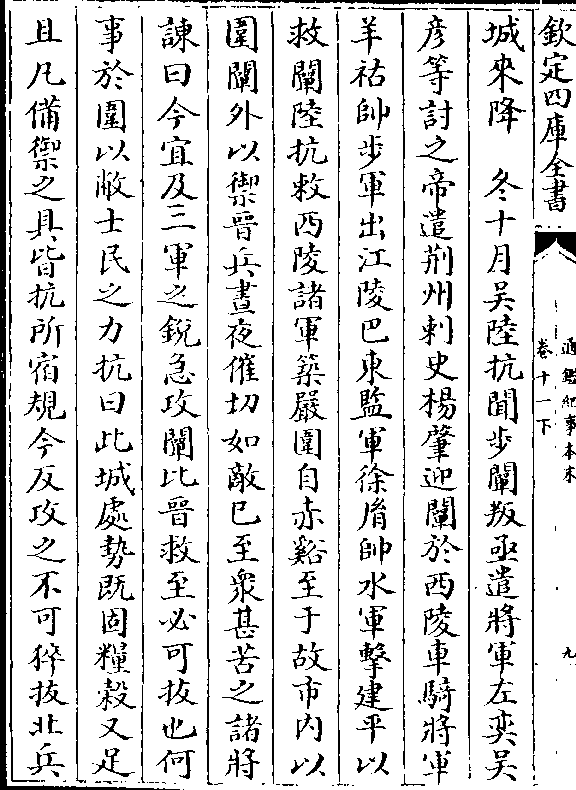 欽定四庫全書
通鑑紀事本末
卷十一下
九
城來降　冬十月吳陸抗聞步闡叛亟遣將軍左奕吳
彦等討之帝遣荆州刺史楊肇迎闡於西陵車騎將軍
羊祜帥步軍出江陵巴東監軍徐𦙍帥水軍擊建平以
救闡陸抗敕西陵諸軍築嚴圍自赤谿至于故市内以
圍闡外以禦晉兵晝夜催切如敵已至衆甚苦之諸將
諫曰今宜及三軍之鋭急攻闡比晉救至必可拔也何
事於圍以敝士民之力抗曰此城處勢既固糧穀又足
且凡備禦之具皆抗所宿規今反攻之不可猝拔北兵